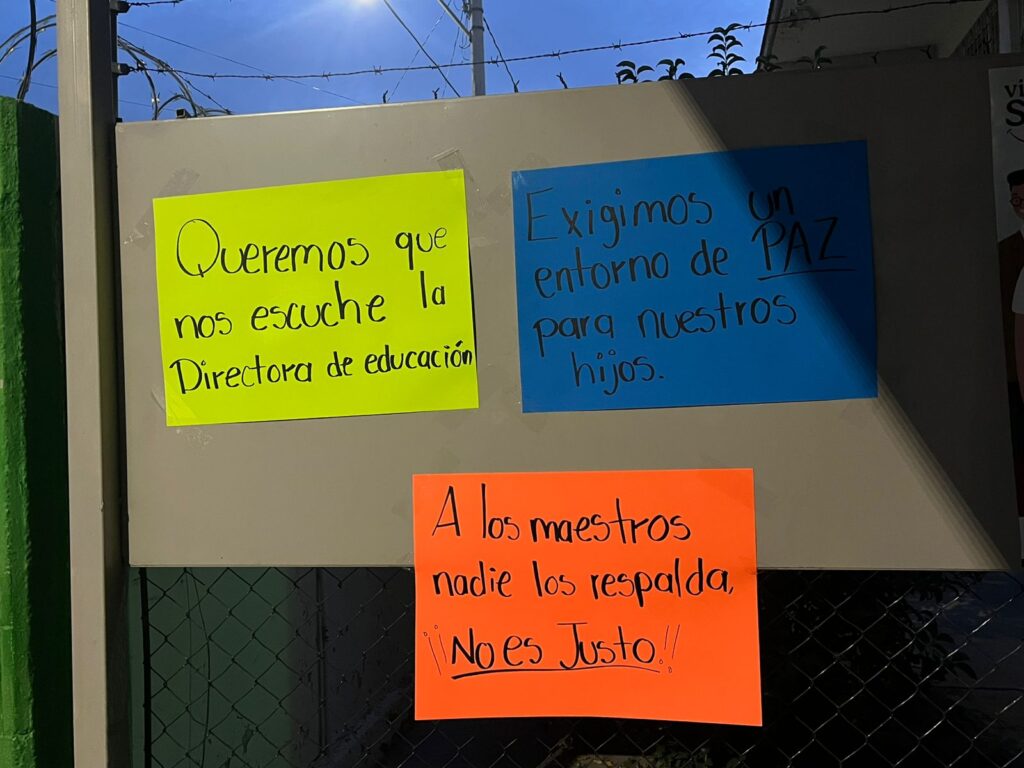 Queremos que
nos escuche la
Directora de educación
Exigimos un
entorno de PAZ
para nuestros
hijos.
A los maestros
nadie los respalda,
¡¡No es Justo!!